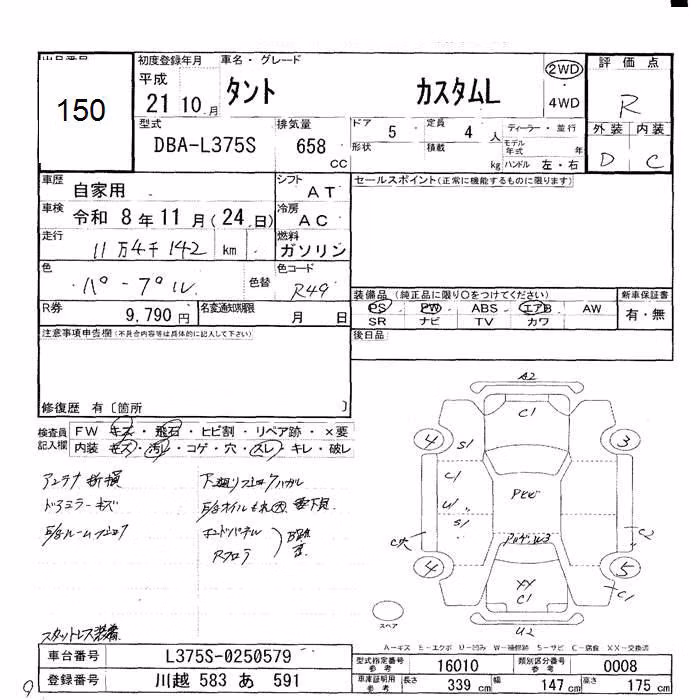 出品番号
150
初度登録年月
平成
21 10 月
車名・グレード
タント カスタムL
2WD
・
4WD
評価点
R
外装 内装
D C
型式
DBA-L375S
排気量
658
CC
ドア
5
定員
4 人
ディーラー・並行
形状
積載
kg
モデル
年式
年
ハンドル 左・右
車歴
自家用
シフト
AT
車検
令和 8 年 11 月 (24 日)
冷房
AC
走行
11万4千142 km
燃料
ガソリン
色
パープル
色替
色コード
R49
R券
9,790 円
名変通知期限
月 日
セールスポイント(正常に機能するものに限ります)
装備品 (純正品に限り○をつけてください)
PS PW ABS エアB AW
SR ナビ TV カワ
新車保証書
有・無
後日品
注意事項申告欄(不具合内容等は具体的に記入して下さい)
修復歴 有〔箇所 〕
検査員
記入欄
FW キズ・飛石・ヒビ割・リペア跡・×要
内装 キズ・汚レ・コゲ・穴・スレ・キレ・破レ
アンテナ折損
ドアミラーキズ
スタットレス装着
A2
C1
4
3
S1
C1
U1
S1
C2
4
5
XY
C1
C1
U2
スペア
A－キズ E－エクボ U－凹み W－補修跡 S－サビ C－腐食 XX－交換済
車台番号
L375S-0250579
登録番号
川越 583 あ 591
型式指定番号
参考
16010
類別区分番号
参考
0008
車庫証明用
参考
長さ
339 cm
幅
147 cm
高さ
175 cm
9